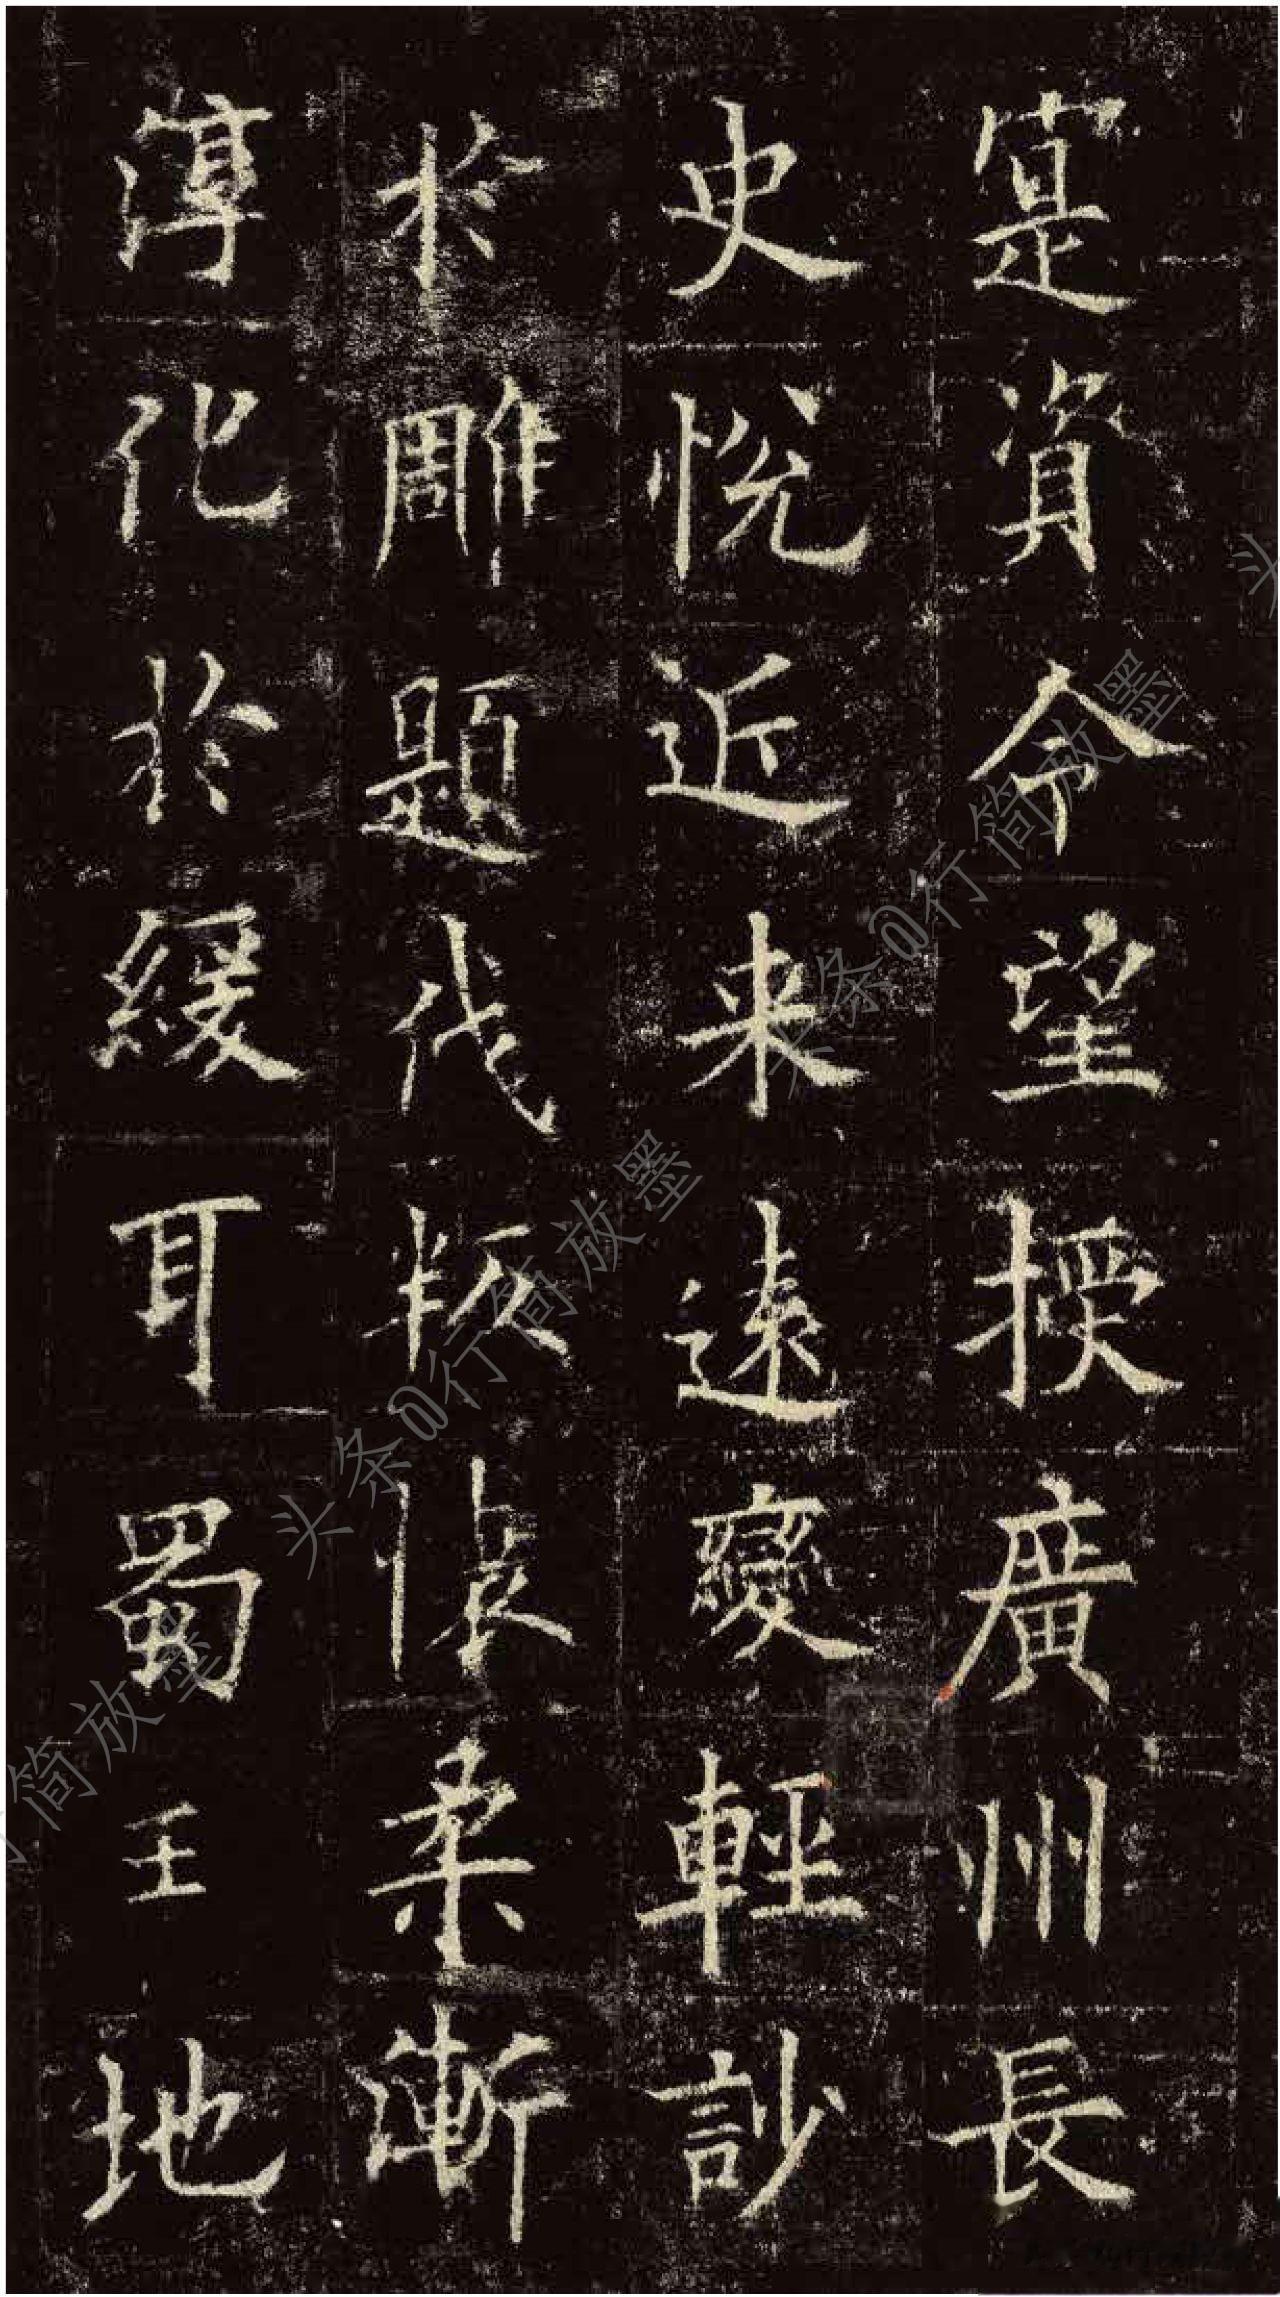 寔資令望授廣州長
史悅近来遠變輕訬
於雕題伐叛懷柔漸
淳化於緩耳蜀王地
头条@行简放墨
头条@行简放墨
简放墨
头